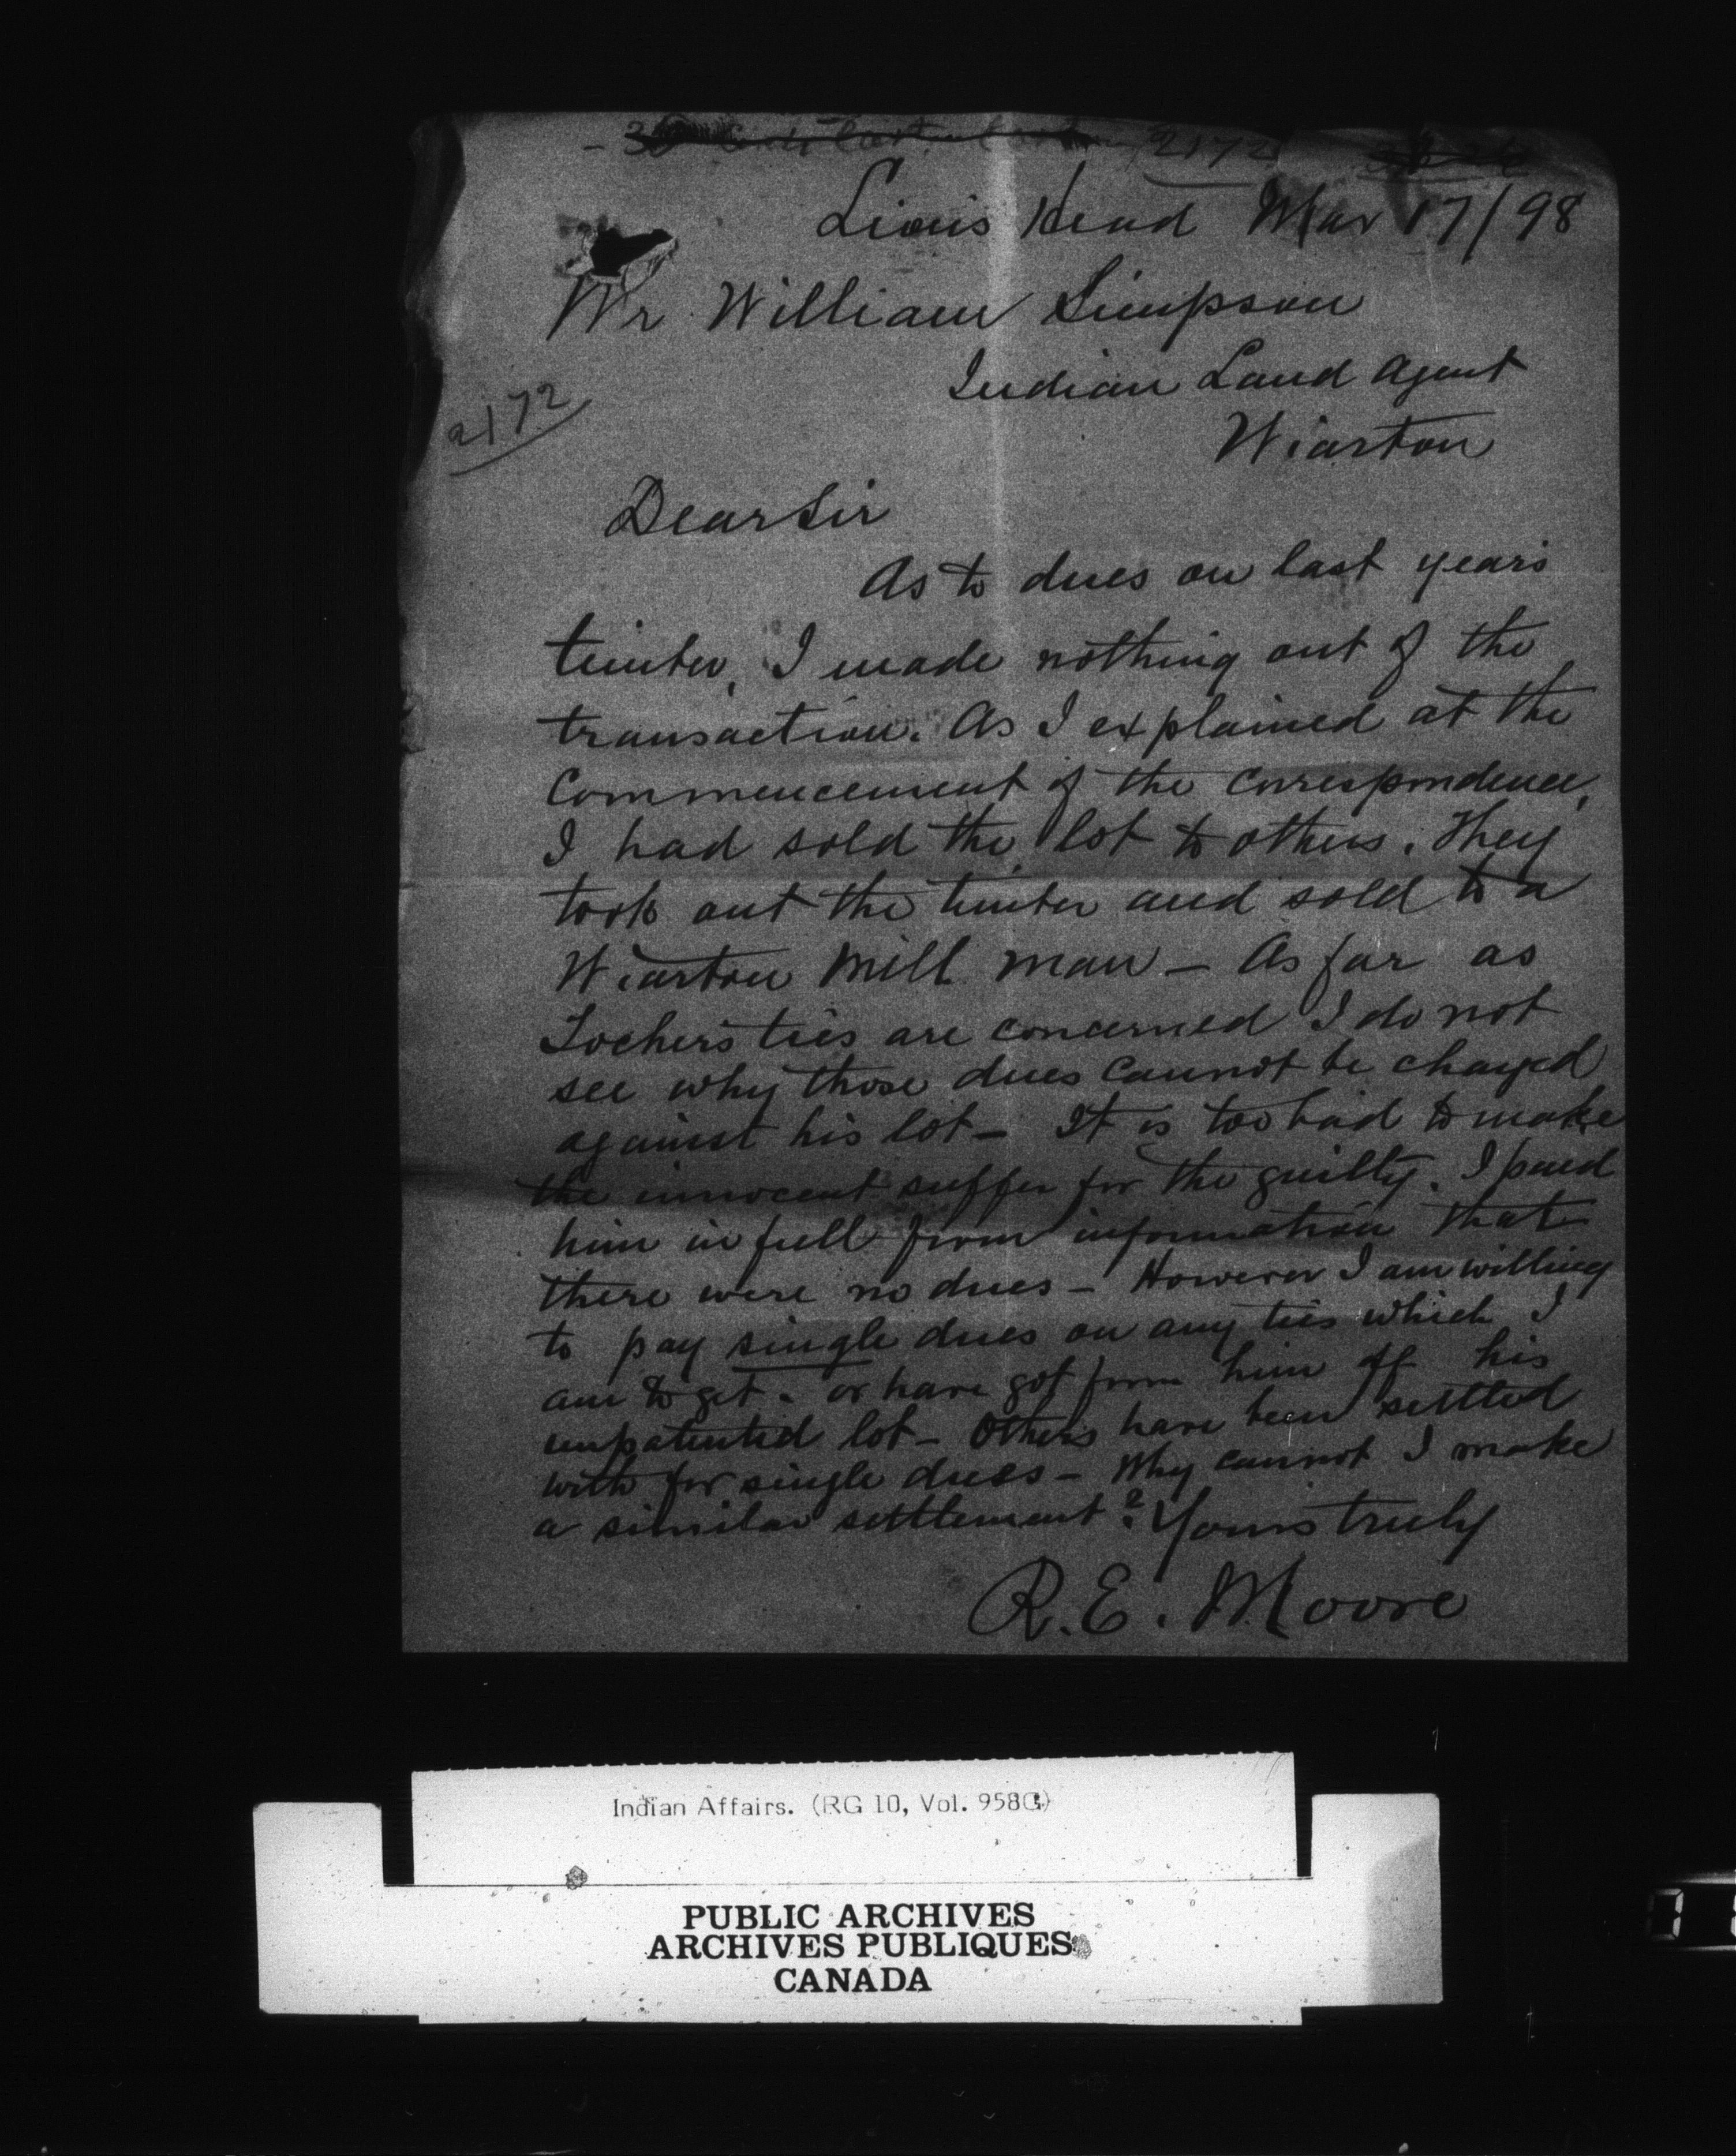 2172
Lions Head Mar 17/98
Mr William Simpson
Indian Land Agent
Wiarton
2172
Dear Sir
As to dues on last years
timber, I made nothing out of the
transaction. As I explained at the
Commencement of the Correspondence,
I had sold the lot to others. They
took out the timber and sold to a
Wiarton Mill man – As far as
ties are concerned I do not
see why those dues cannot be charged
against his lot – It is too bad to make
the innocent suffer for the guilty. I paid
him in full from information that
there were no dues – However I am willing
to pay single dues on any ties which I
am to get. or have got from him off his
unpatented lot – Others have been settled
with for single dues – Why cannot I make
a similar settlement? Yours truly
R. E. Moore
Indian Affairs. (RG 10, Vol. 958G)
PUBLIC ARCHIVES
ARCHIVES PUBLIQUES
CANADA